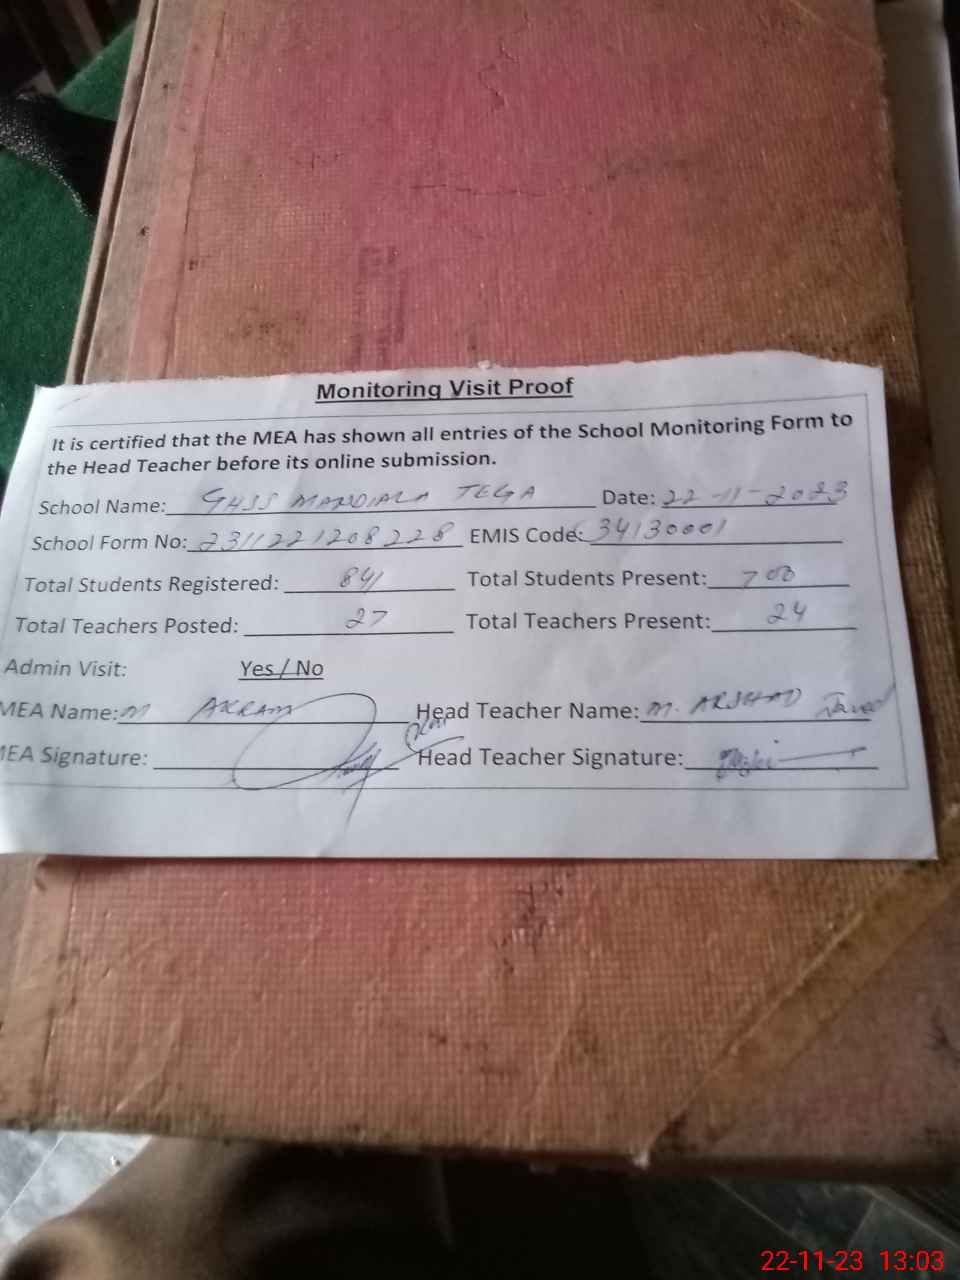 Monitoring Visit Proof
It is certified that the MEA has shown all entries of the School Monitoring Form to
the Head Teacher before its online submission.
School Name: GHSS MANDIALA TEGA Date: 22-11-2023
School Form No: 2311221208228 EMIS Code: 34130001
Total Students Registered: 841 Total Students Present: 700
Total Teachers Posted: 27 Total Teachers Present: 24
Admin Visit: Yes / No
MEA Name: M AKRAM Head Teacher Name: M. ARSHAD Javed
MEA Signature: Head Teacher Signature:
22-11-23 13:03